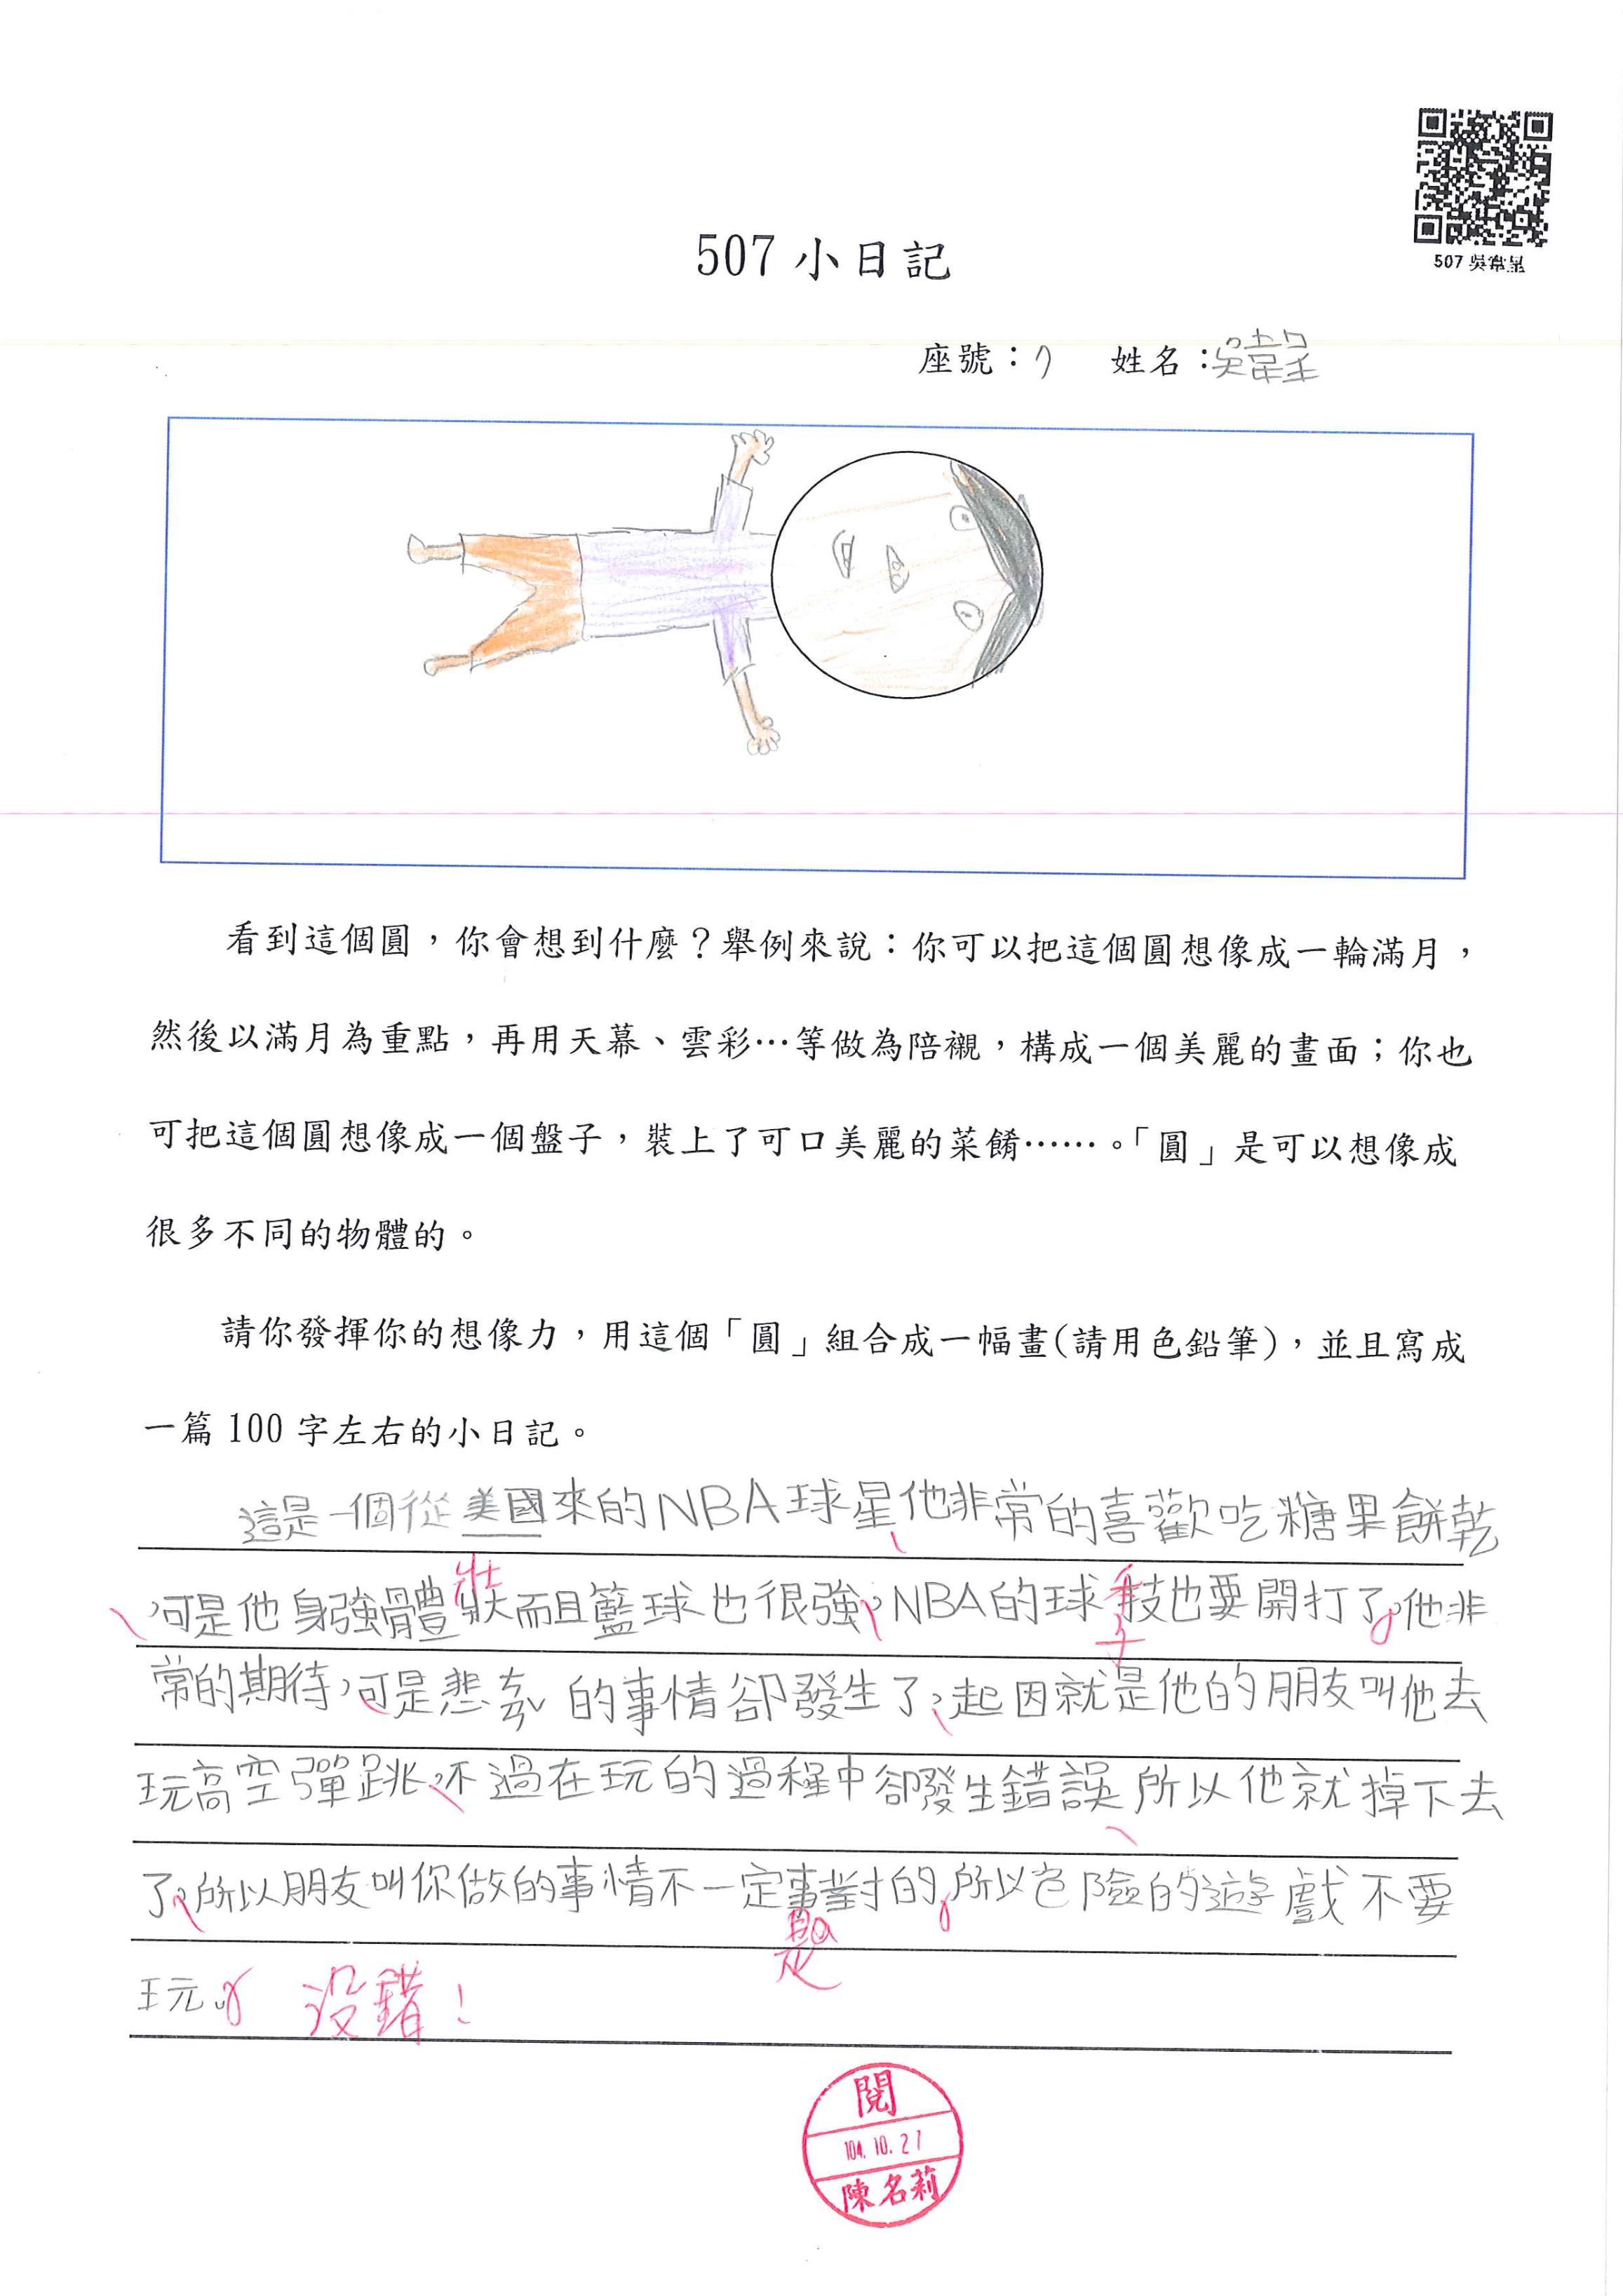 507 吳韋呈
507 小日記
座號：7 姓名：吳韋呈
看到這個圓，你會想到什麼？舉例來說：你可以把這個圓想像成一輪滿月，
然後以滿月為重點，再用天幕、雲彩…等做為陪襯，構成一個美麗的畫面；你也
可把這個圓想像成一個盤子，裝上了可口美麗的菜餚……。「圓」是可以想像成
很多不同的物體的。
請你發揮你的想像力，用這個「圓」組合成一幅畫(請用色鉛筆)，並且寫成
一篇 100 字左右的小日記。
這是一個從美國來的NBA球星他非常的喜歡吃糖果餅乾
壯
，可是他身強體而且籃球也很強，NBA的球技也要開打了，他非
常的期待，可是悲哀的事情卻發生了，起因就是他的朋友叫他去
玩高空彈跳，不過在玩的過程中卻發生錯誤所以他就掉下去
了，所以朋友叫你做的事情不一定事對的，所以危險的遊戲不要
是
玩。 沒錯！
閱
104.10.27
陳名莉